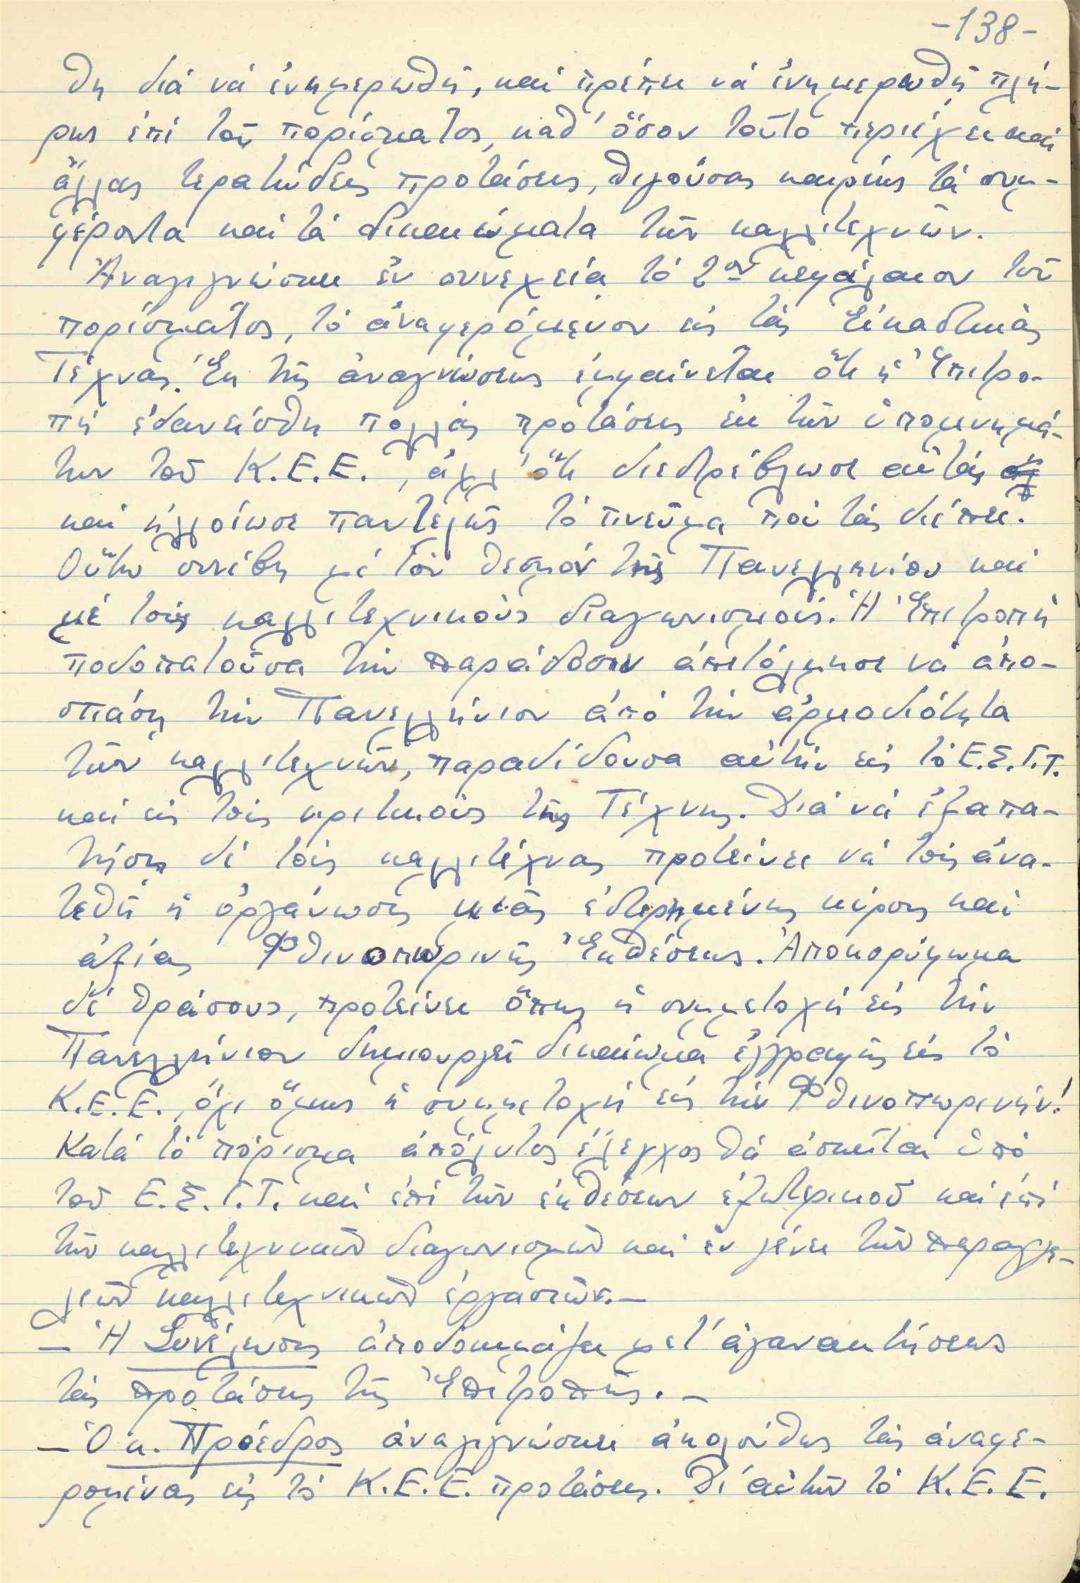 -138-
θη διά νά ἐνημερωθῇ, καί πρέπει νά ἐνημερωθῇ πλή-
ρως ἐπί τοῦ πορίσματος, καθ' ὅσον τοῦτο περιέχει καί
ἄλλας τερατώδεις προτάσεις, θιγούσας καιρίως τά συμ-
φέροντα καί τά δικαιώματα τῶν καλλιτεχνῶν.
Ἀναγιγνώσκει ἐν συνεχείᾳ τό 2ον κεφάλαιον τοῦ
πορίσματος, τό ἀναφερόμενον εἰς τάς Εἰκαστικάς
Τέχνας. Ἐκ τῆς ἀναγνώσεως ἐμφαίνεται ὅτι ἡ Ἐπιτρο-
πή ἐδανείσθη πολλάς προτάσεις ἐκ τῶν ὑπομνημά-
των τοῦ Κ.Ε.Ε., ἀλλ' ὅτι διεστρέβλωσε αὐτάς
καί ἠλλοίωσε παντελῶς τό πνεῦμα πού τάς διέπει.
Οὕτω συνέβη μέ τόν θεσμόν τῆς Πανελληνίου καί
μέ τούς καλλιτεχνικούς διαγωνισμούς. Ἡ Ἐπιτροπή
ποδοπατοῦσα τήν παράδοσιν ἀπετόλμησε νά ἀπο-
σπάσῃ τήν Πανελλήνιον ἀπό τήν ἁρμοδιότητα
τῶν καλλιτεχνῶν, παραδίδουσα αὐτήν εἰς τό Ε.Σ.Γ.Τ.
καί εἰς τούς κριτικούς τῆς Τέχνης. Διά νά ἐξαπα-
τήσῃ δέ τούς καλλιτέχνας προτείνει νά τούς ἀνα-
τεθῇ ἡ ὀργάνωσις μιᾶς ἐστερημένης κύρους καί
ἀξίας Φθινοπωρινῆς Ἐκθέσεως. Ἀποκορύφωμα
δέ θράσους, προτείνει ὅπως ἡ συμμετοχή εἰς τήν
Πανελλήνιον δημιουργεῖ δικαίωμα ἐγγραφῆς εἰς τό
Κ.Ε.Ε., ὄχι ὅμως ἡ συμμετοχή εἰς τήν Φθινοπωρινήν!
Κατά τό πόρισμα ἀπόλυτος ἔλεγχος θά ἀσκεῖται ὑπό
τοῦ Ε.Σ.Γ.Τ. καί ἐπί τῶν ἐκθέσεων ἐξωτερικοῦ καί ἐπί
τῶν καλλιτεχνικῶν διαγωνισμῶν καί ἐν γένει τῶν παραγγε-
λιῶν καλλιτεχνικῶν ἐργασιῶν.—
— Ἡ Συνέλευσις ἀποδοκιμάζει μετ' ἀγανακτήσεως
τάς προτάσεις τῆς Ἐπιτροπῆς.—
— Ὁ κ. Πρόεδρος ἀναγιγνώσκει ἀκολούθως τάς ἀναφε-
ρομένας εἰς τό Κ.Ε.Ε. προτάσεις. Δι' αὐτῶν τό Κ.Ε.Ε.